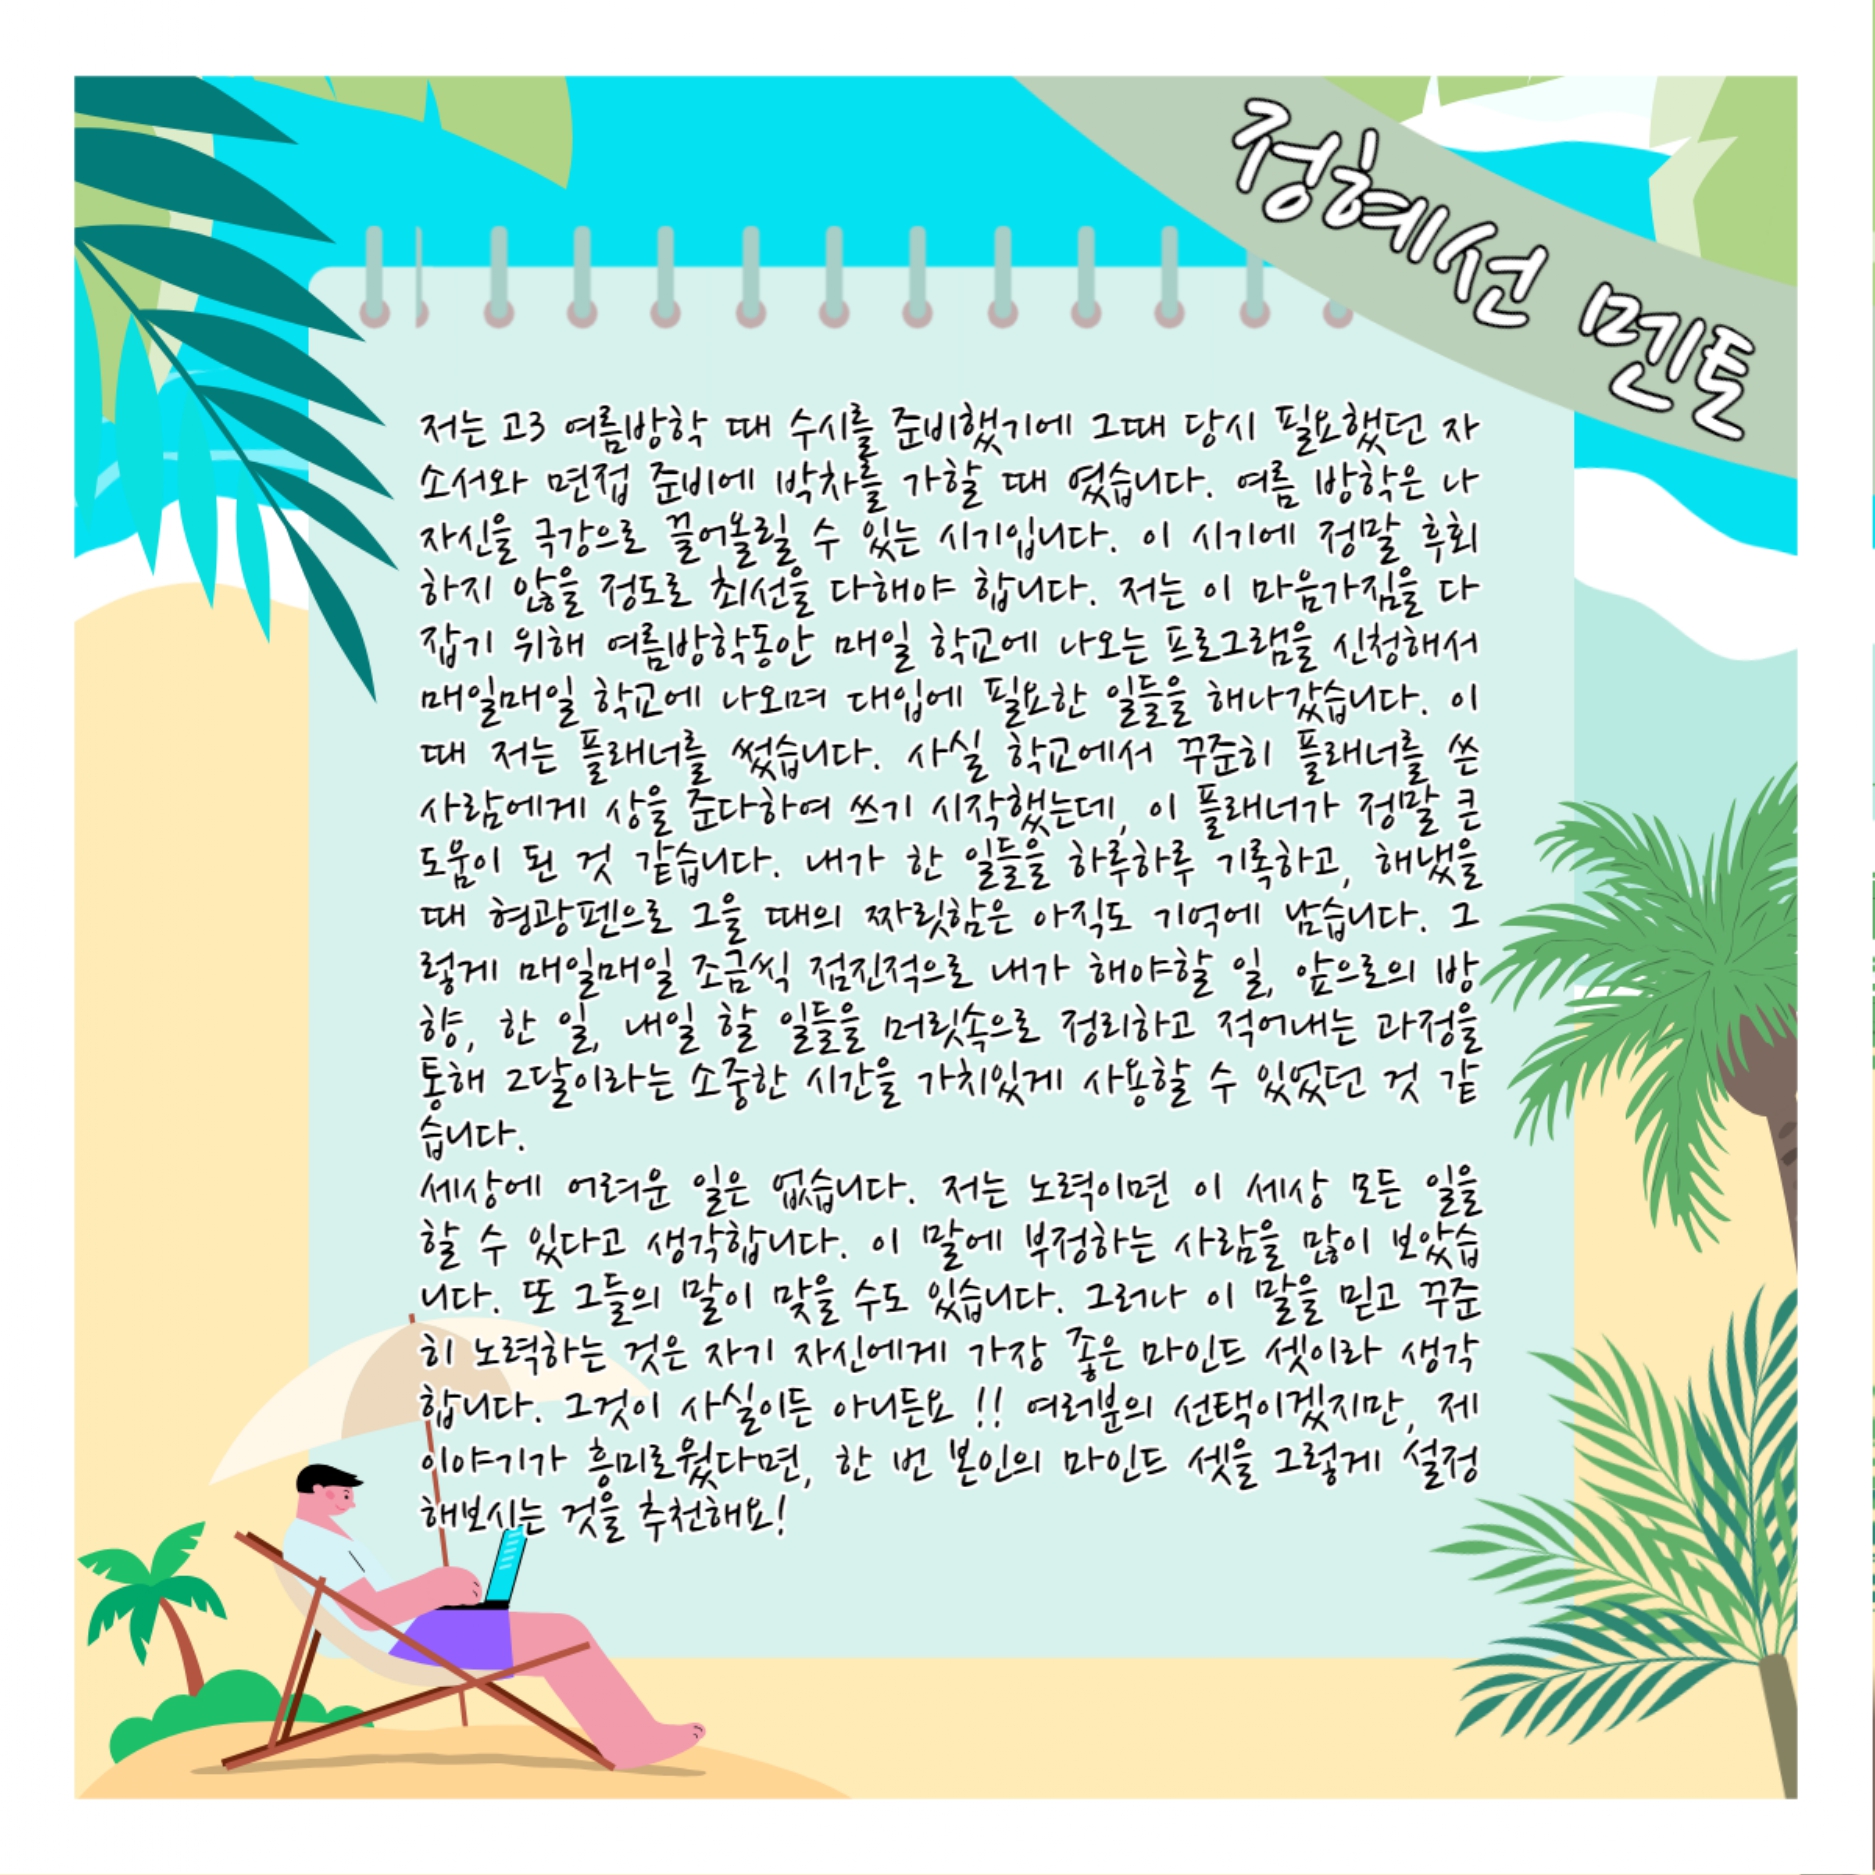 정혜선 멘토
저는 고3 여름방학 때 수시를 준비했기에 그때 당시 필요했던 자
소서와 면접 준비에 박차를 가할 때 였습니다. 여름 방학은 나
자신을 극강으로 끌어올릴 수 있는 시기입니다. 이 시기에 정말 후회
하지 않을 정도로 최선을 다해야 합니다. 저는 이 마음가짐을 다
잡기 위해 여름방학동안 매일 학교에 나오는 프로그램을 신청해서
매일매일 학교에 나오며 대입에 필요한 일들을 해나갔습니다. 이
때 저는 플래너를 썼습니다. 사실 학교에서 꾸준히 플래너를 쓴
사람에게 상을 준다하여 쓰기 시작했는데, 이 플래너가 정말 큰
도움이 된 것 같습니다. 내가 한 일들을 하루하루 기록하고, 해냈을
때 형광펜으로 그을 때의 짜릿함은 아직도 기억에 남습니다. 그
렇게 매일매일 조금씩 점진적으로 내가 해야할 일, 앞으로의 방
향, 한 일, 내일 할 일들을 머릿속으로 정리하고 적어내는 과정을
통해 2달이라는 소중한 시간을 가치있게 사용할 수 있었던 것 같
습니다.
세상에 어려운 일은 없습니다. 저는 노력이면 이 세상 모든 일을
할 수 있다고 생각합니다. 이 말에 부정하는 사람을 많이 보았습
니다. 또 그들의 말이 맞을 수도 있습니다. 그러나 이 말을 믿고 꾸준
히 노력하는 것은 자기 자신에게 가장 좋은 마인드 셋이라 생각
합니다. 그것이 사실이든 아니든요 !! 여러분의 선택이겠지만, 제
이야기가 흥미로웠다면, 한 번 본인의 마인드 셋을 그렇게 설정
해보시는 것을 추천해요!